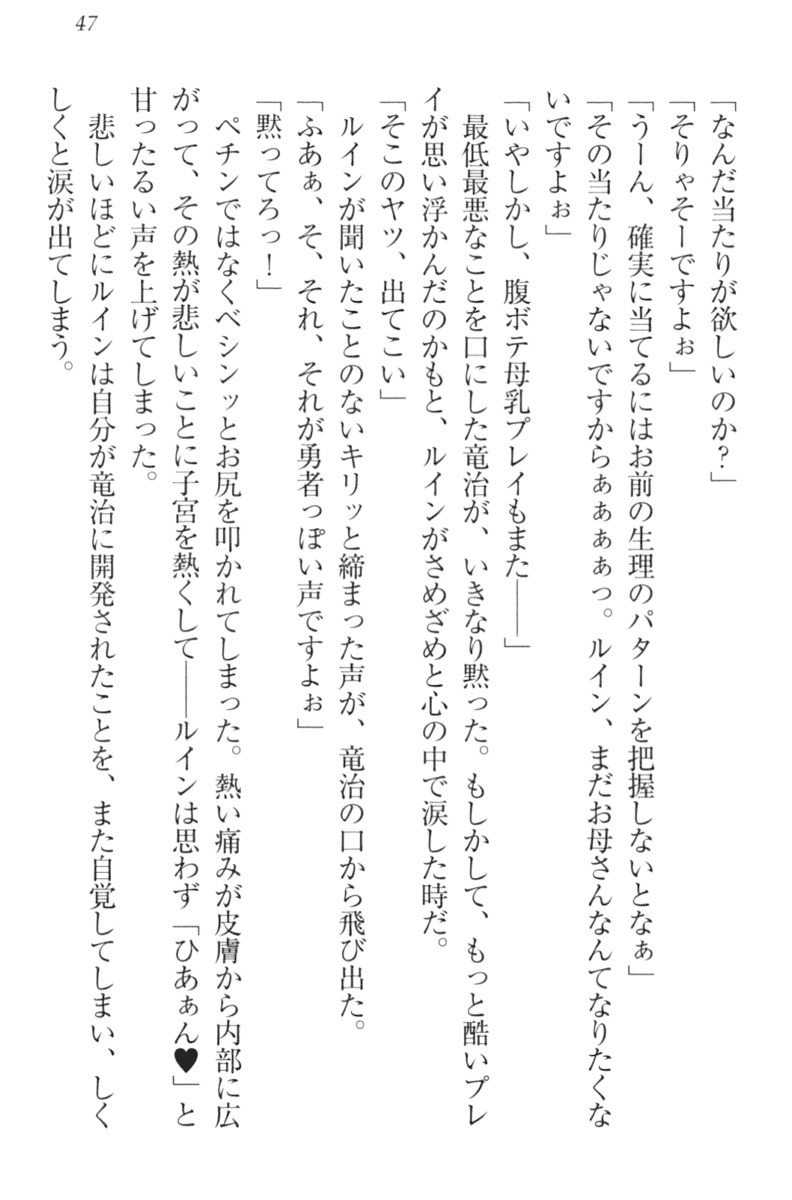 47
「なんだ当たりが欲しいのか?」
「そりゃそーですよぉ」
「うーん、確実に当てるにはお前の生理のパターンを把握しないとなぁ」
「その当たりじゃないですからぁぁぁぁっ。ルイン、まだお母さんなんてなりたくな
いですよぉ」
「いやしかし、腹ボテ母乳プレイもまた――」
　最低最悪なことを口にした竜治が、いきなり黙った。もしかして、もっと酷いプレ
イが思い浮かんだのかもと、ルインがさめざめと心の中で涙した時だ。
「そこのヤツ、出てこい」
　ルインが聞いたことのないキリッと締まった声が、竜治の口から飛び出た。
「ふあぁ、そ、それ、それが勇者っぽい声ですよぉ」
「黙ってろっ!」
　ペチンではなくベシンッとお尻を叩かれてしまった。熱い痛みが皮膚から内部に広
がって、その熱が悲しいことに子宮を熱くして――ルインは思わず「ひあぁん♥」と
甘ったるい声を上げてしまった。
　悲しいほどにルインは自分が竜治に開発されたことを、また自覚してしまい、しく
しくと涙が出てしまう。